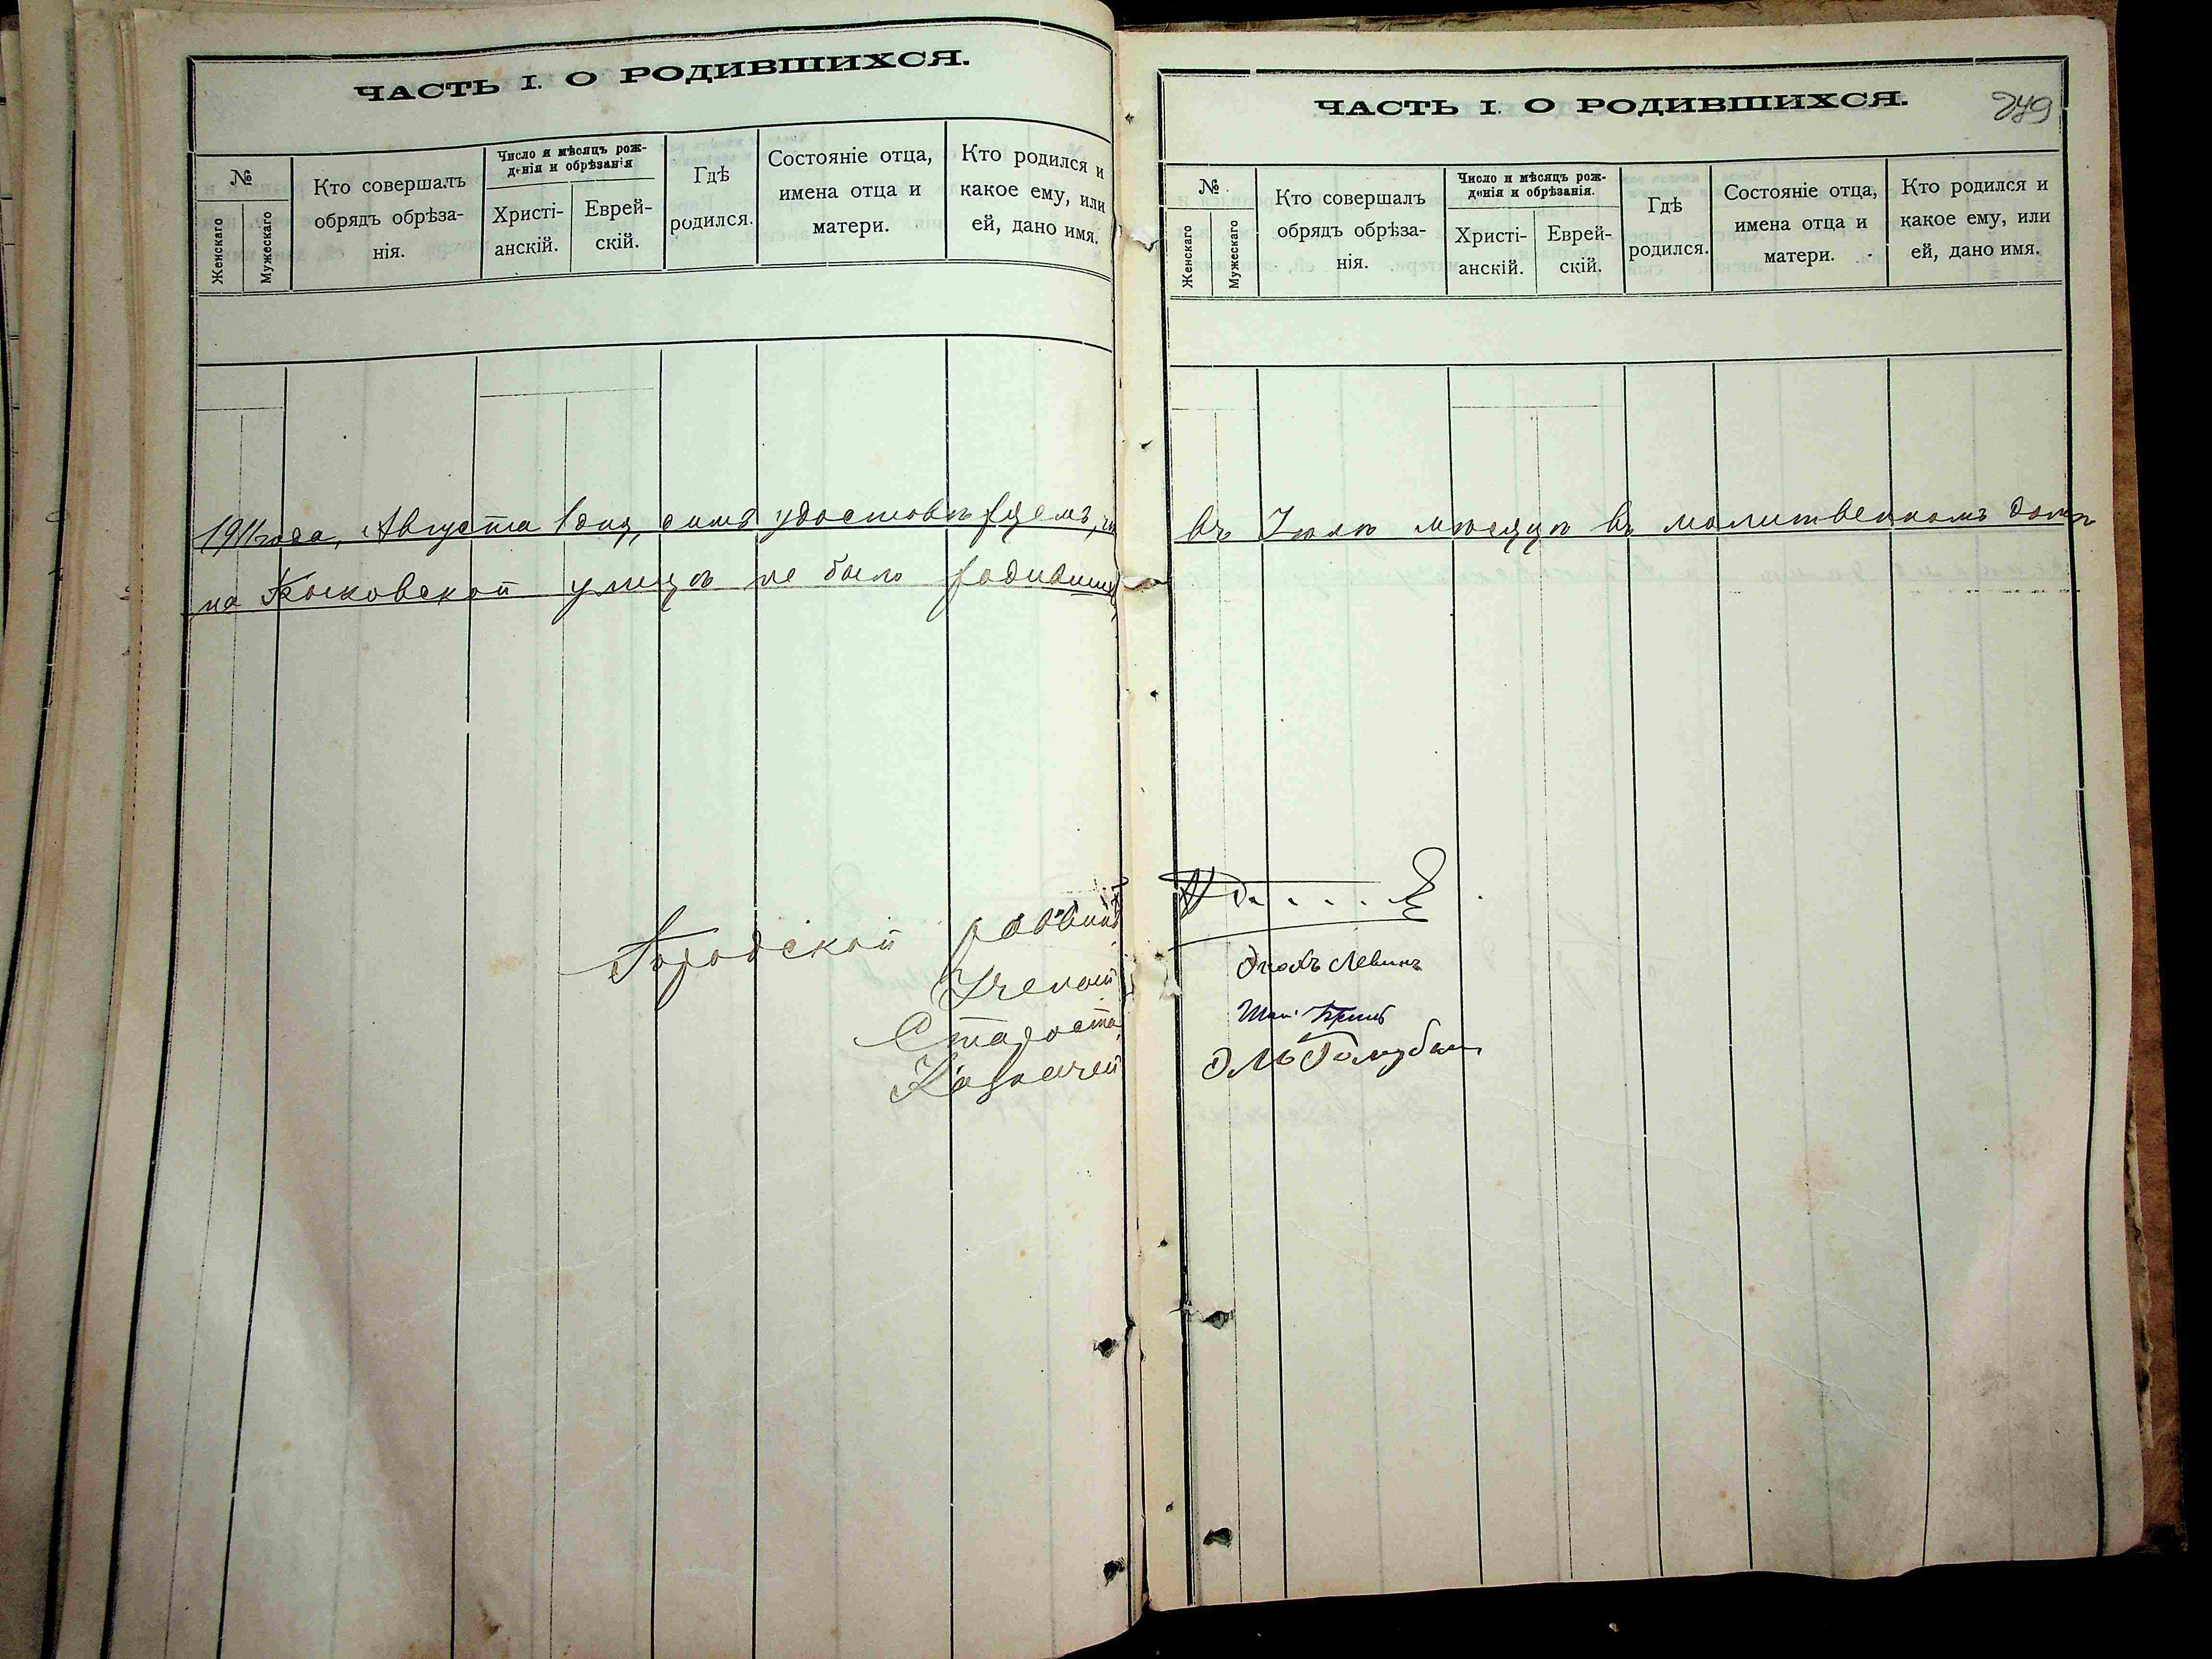 ЧАСТЬ I. О РОДИВШИХСЯ.
№
Женскаго
Мужескаго
Кто совершалъ
обрядъ обрѣза-
нія.
Число и мѣсяцъ рож-
денія и обрѣзанія
Христі-
анскій.
Еврей-
скій.
Гдѣ
родился.
Состояніе отца,
имена отца и
матери.
Кто родился и
какое ему, или
ей, дано имя.
1911 года, Августа 1 дня, симъ удостовѣряемъ,
на улицѣ не было
Городской раввинъ
Ученый
Староста
Казначей
ЧАСТЬ I. О РОДИВШИХСЯ.
279
№
Женскаго
Мужескаго
Кто совершалъ
обрядъ обрѣза-
нія.
Число и мѣсяцъ рож-
денія и обрѣзанія.
Христі-
анскій.
Еврей-
скій.
Гдѣ
родился.
Состояніе отца,
имена отца и
матери.
Кто родился и
какое ему, или
ей, дано имя.
въ Іюлѣ мѣсяцѣ въ молитвенномъ домѣ
Левинъ